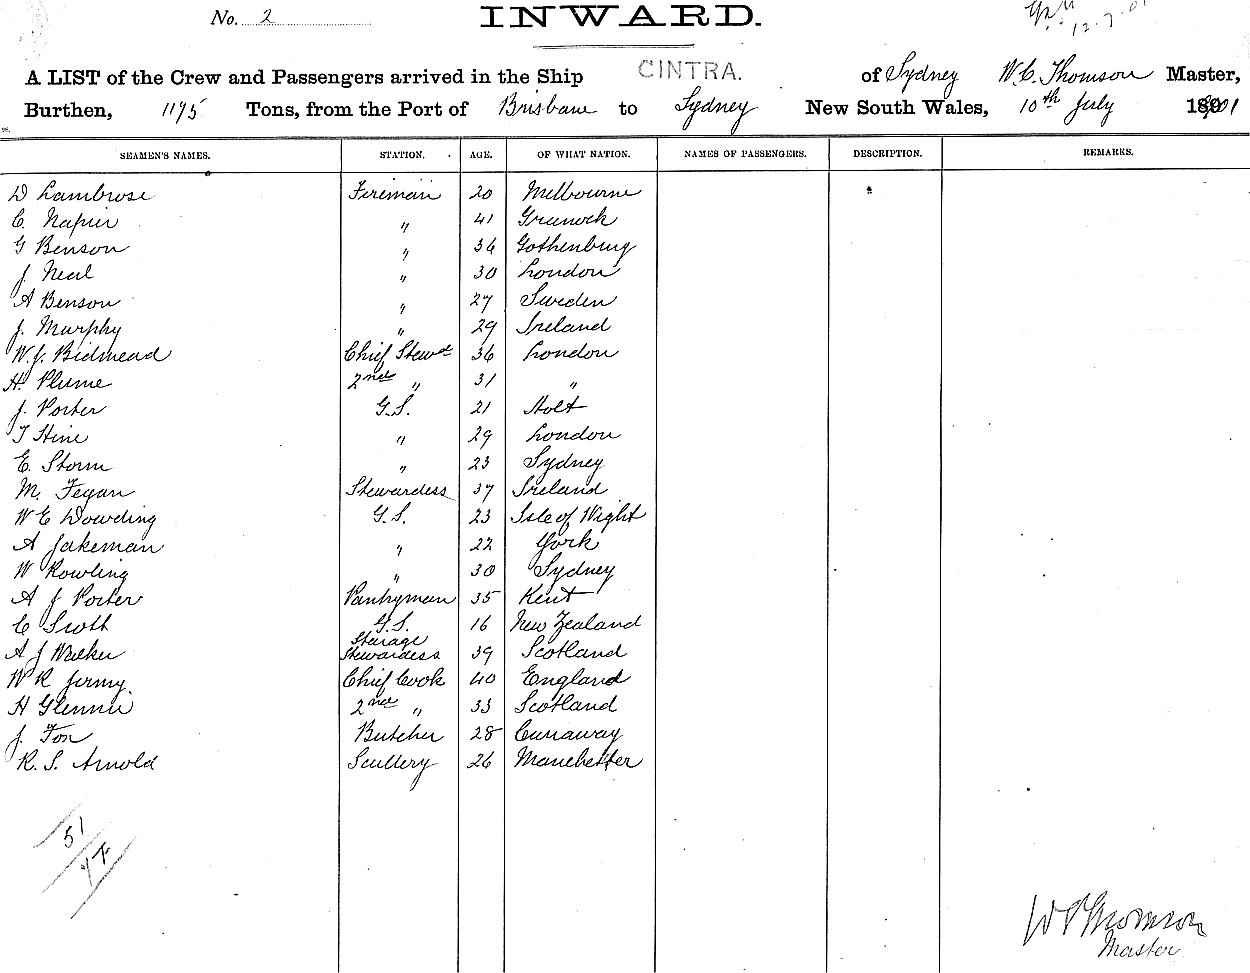 No. 2
INWARD.
12.7.01
A LIST of the Crew and Passengers arrived in the Ship CINTRA. of Sydney W.C. Thomson Master,
Burthen, 1195 Tons, from the Port of Brisbane to Sydney New South Wales, 10th July 1901
SEAMEN'S NAMES. STATION. AGE. OF WHAT NATION. NAMES OF PASSENGERS. DESCRIPTION. REMARKS.
D Lambrose Fireman 20 Melbourne
C. Napier " 41 Greenock
G Benson " 34 Gothenburg
J Neal " 30 London
A Benson " 27 Sweden
J. Murphy " 29 Ireland
W.J. Bidmead Chief Stewd 36 London
H. Plume 2nd " 31 "
J. Porter G.S. 21 Holt
T Hine " 29 London
E. Storm " 23 Sydney
M. Fegan Stewardess 37 Ireland
W E Dowding G.S. 23 Isle of Wight
A Jakeman " 22 York
W Rowling " 30 Sydney
A J Porter Pantryman 35 Kent
C Scott G.S. 16 New Zealand
A J Walker Stearage Stewardess 39 Scotland
W R Jermy. Chief Cook 40 England
H Glennie 2nd " 33 Scotland
J. Fox Butcher 28 Cunaway
R. S. Arnold Scullery 26 Manchester
51
W C Thomson
Master